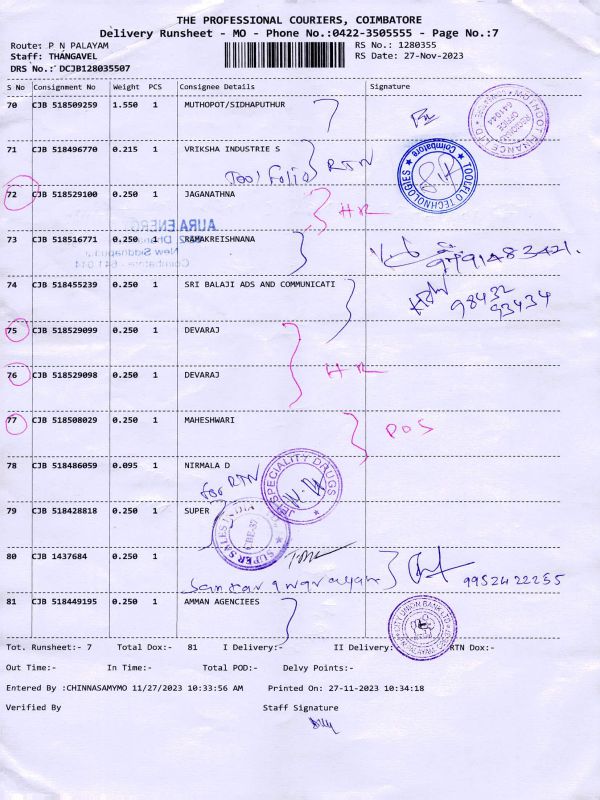 THE PROFESSIONAL COURIERS, COIMBATORE
Delivery Runsheet - MO - Phone No.:0422-3505555 - Page No.:7
Route: P N PALAYAM RS No.: 1280355
Staff: THANGAVEL RS Date: 27-Nov-2023
DRS No.: DCJB128035507
S No Consignment No Weight PCS Consignee Details Signature
70 CJB 518509259 1.550 1 MUTHOPOT/SIDHAPUTHUR
MUTHOOT FINANCE LTD
641044
71 CJB 518496770 0.215 1 VRIKSHA INDUSTRIE S
Tool folio RTN
TOOLFLO TECHNOLOGIES
Coimbatore
72 CJB 518529100 0.250 1 JAGANATHNA
HR
AURA ENERG
New Siddhapudur
Coimbatore - 641 044
73 CJB 518516771 0.250 1 RAMAKREISHNANA
9791483421.
74 CJB 518455239 0.250 1 SRI BALAJI ADS AND COMMUNICATI
98432
93434
75 CJB 518529099 0.250 1 DEVARAJ
76 CJB 518529098 0.250 1 DEVARAJ
HR
77 CJB 518508029 0.250 1 MAHESHWARI
POS
78 CJB 518486059 0.095 1 NIRMALA D
for RTN
JPI SPECIALITY DRUGS
79 CJB 518428818 0.250 1 SUPER
SUPER SALES INDIA
CBE-37
80 CJB 1437684 0.250 1
9952422255
81 CJB 518449195 0.250 1 AMMAN AGENCIEES
CITY UNION BANK LTD
Tot. Runsheet:- 7 Total Dox:- 81 I Delivery:- II Delivery:- RTN Dox:-
Out Time:- In Time:- Total POD:- Delvy Points:-
Entered By :CHINNASAMYMO 11/27/2023 10:33:56 AM Printed On: 27-11-2023 10:34:18
Verified By Staff Signature